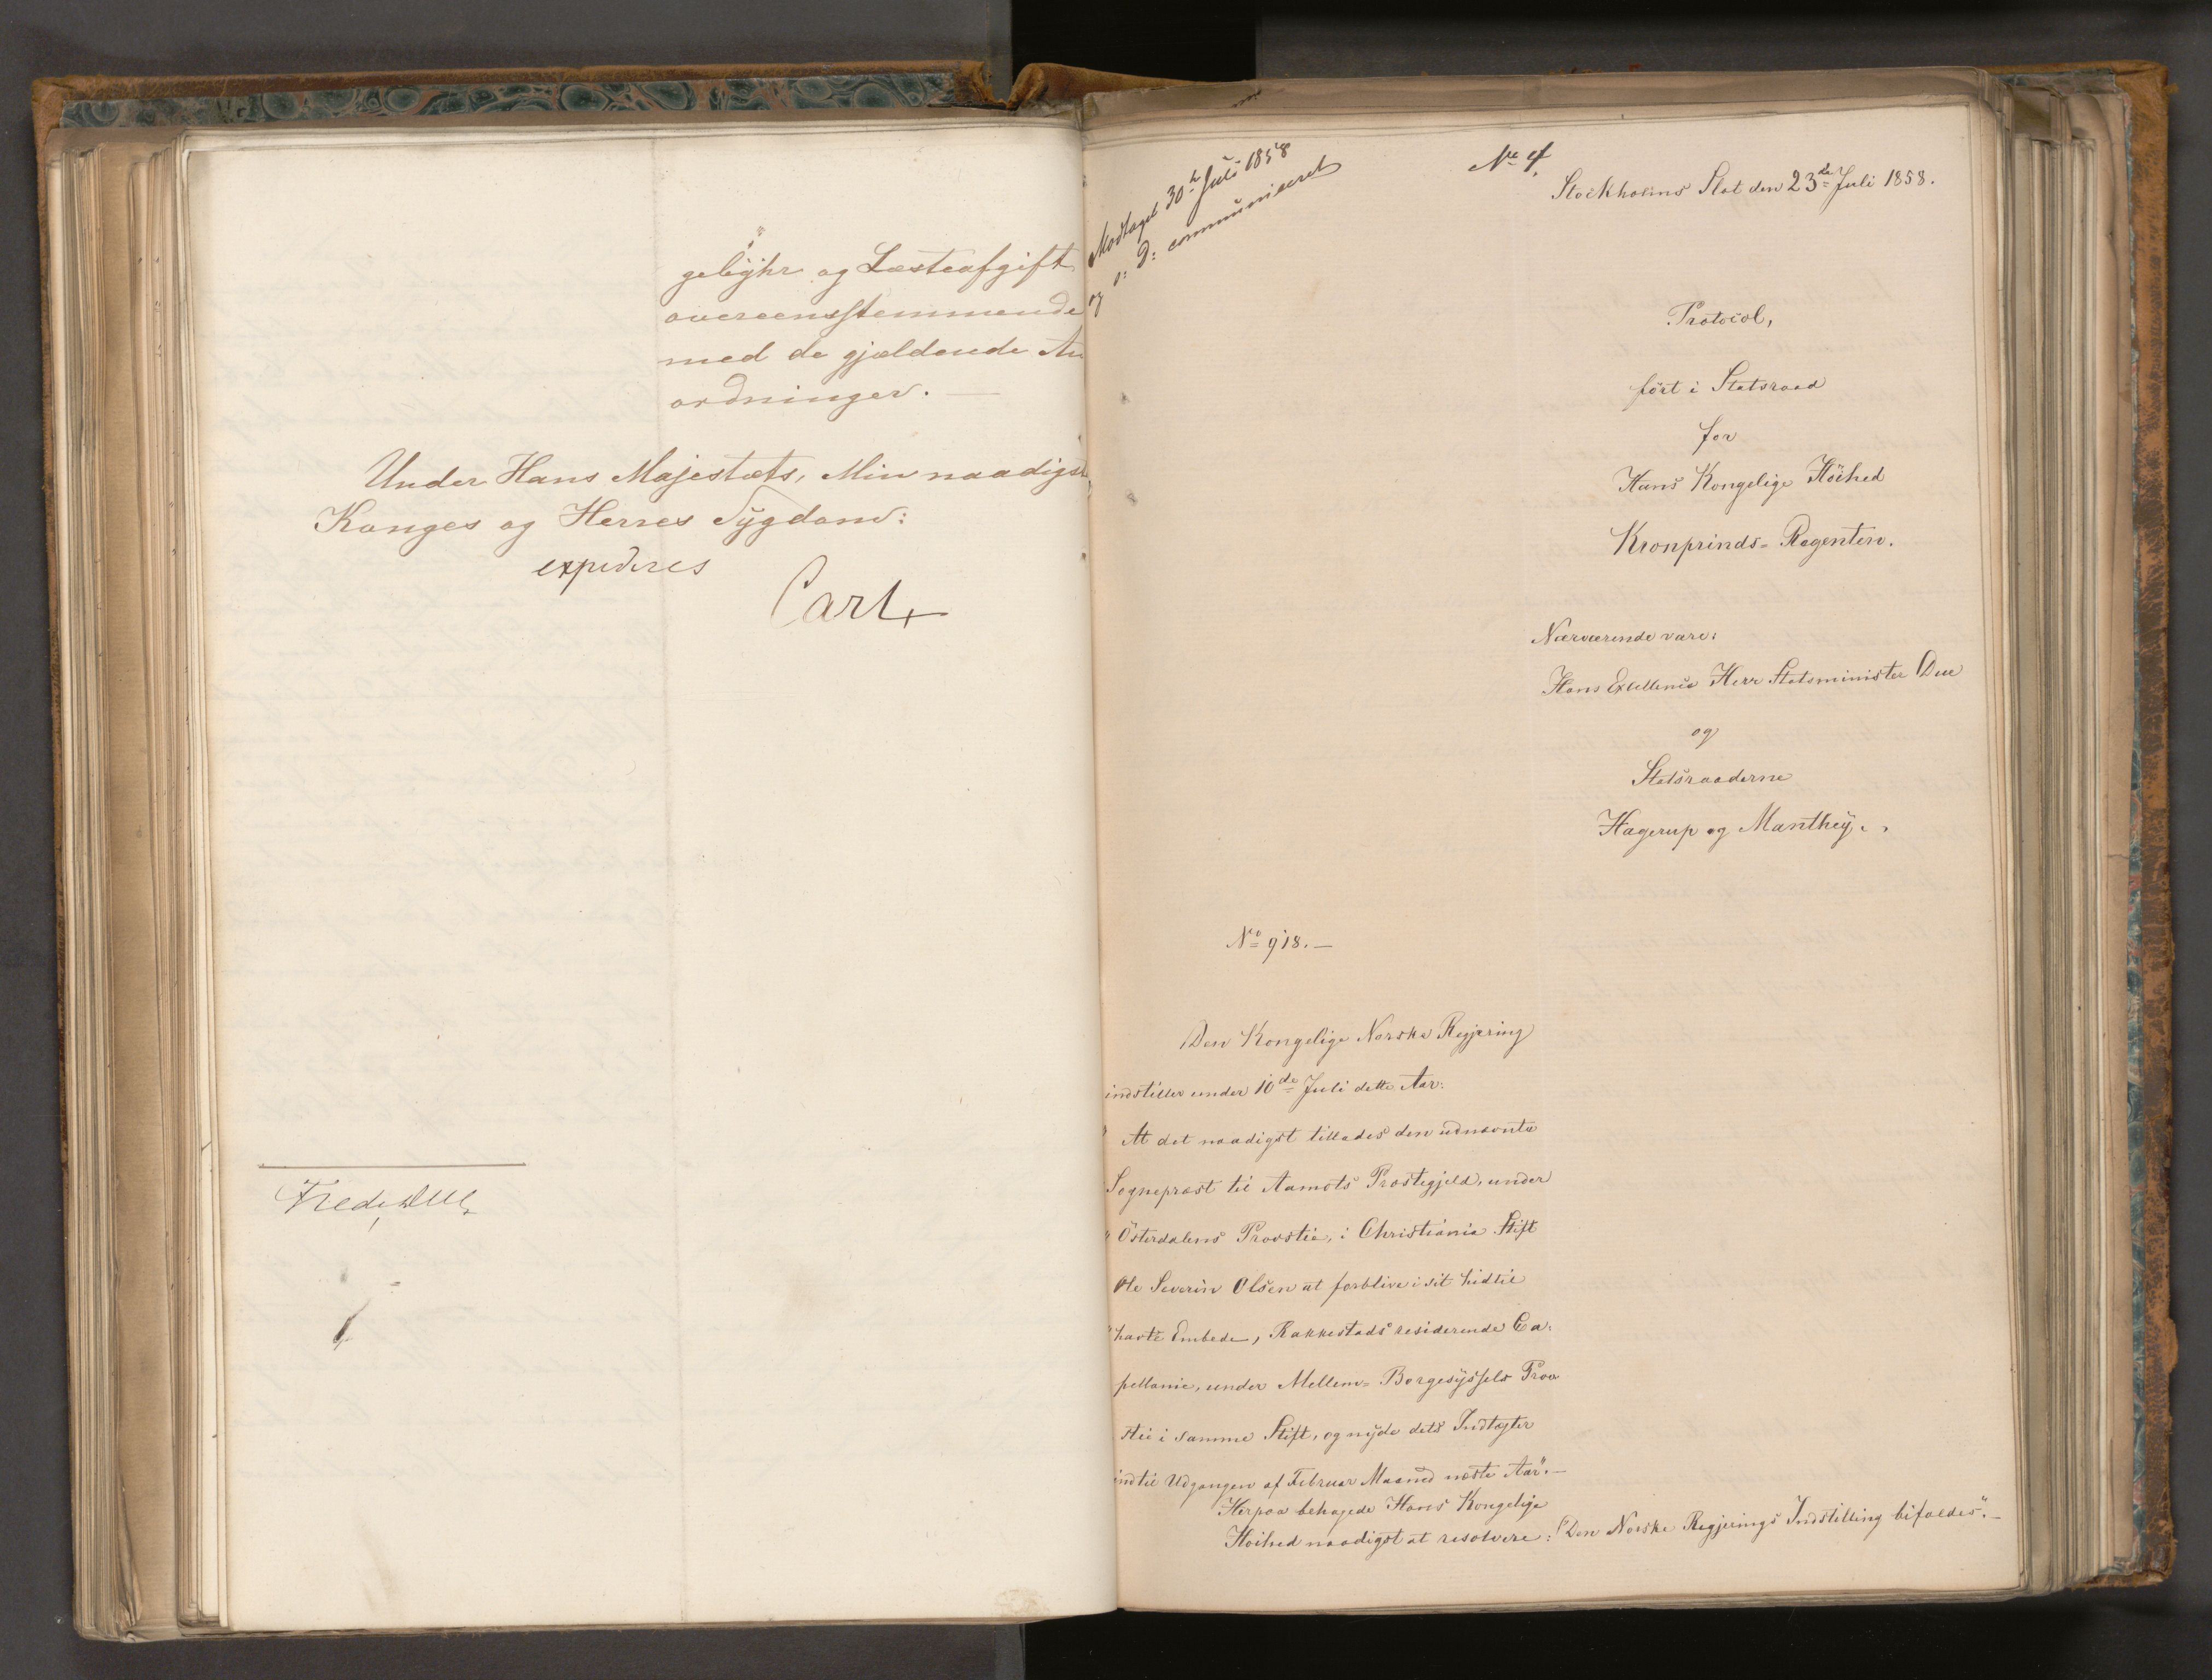 gebÿhr og Læsteafgift
overeensstemmende
med de gjældende An
ordninger. —
Under Hans Majestæts, Min naadigste
Konges og Herres Sÿgdom:
expederes
Carl
Fred. Due
Modtaget 30te Juli 1858
og s: D: communiceret
No 4.
Stockholms Slot den 23de Juli 1858.
Protocol,
ført i Statsraad
for
Hans Kongelige Høihed
Kronprinds-Regenten.
Nærværende vare:
Hans Excellence Herr Statsminister Due
og
Statsraaderne
Hagerup og Manthey.
No 918. —
Den Kongelige Norske Regjering
indstiller under 10de Juli dette Aar:
" At det naadigst tillades den udnævnte
Sognepræst til Aamots Præstegjeld, under
" Østerdalens Provstie, i Christiania Stift
Ole Severin Olsen at forblive i sit hidtil
" havte Embede, Rakkestads residerende Ca-
pellanie, under Mellem-Borgesÿssels Prov
stie i samme Stift, og nÿde dets Indtægter
indtil Udgangen af Februar Maaned næste Aar". —
Herpaa behagede Hans Kongelige
Høihed naadigst at resolvere: "Den Norske Regjerings Indstilling bifaldes". —